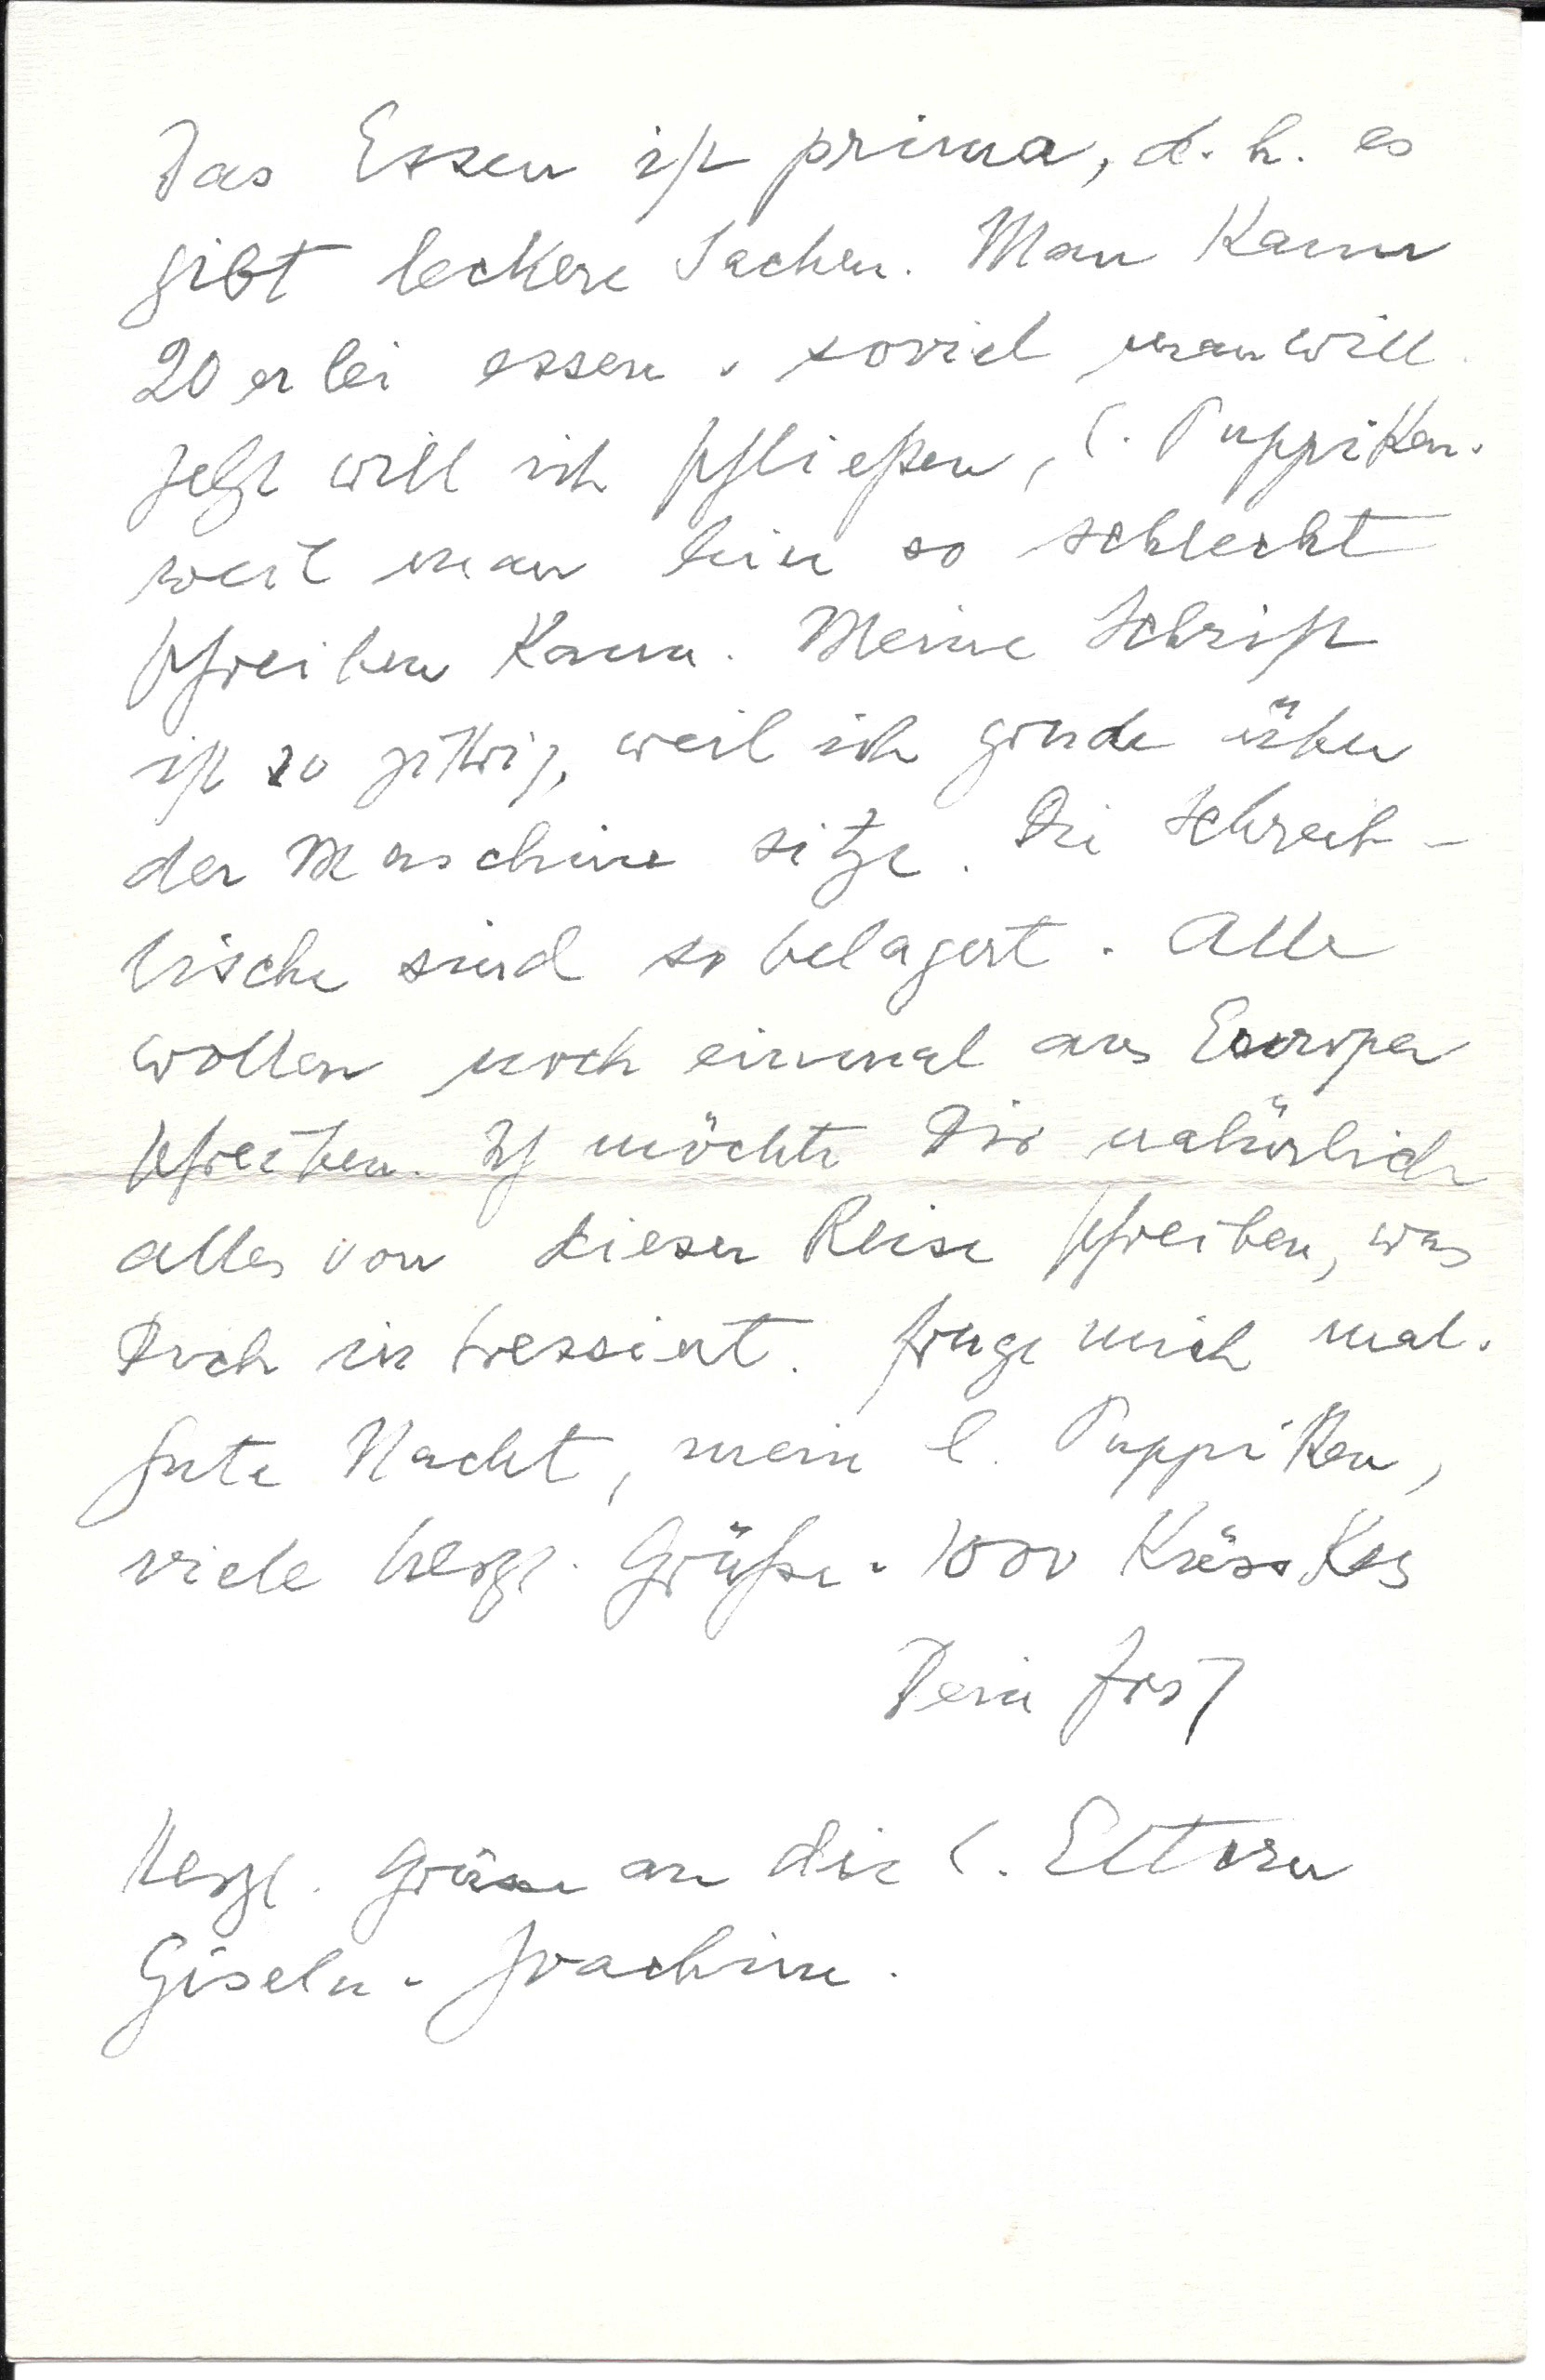 Das Essen ist prima, d. h. es
gibt leckere Sachen. Man kann
20erlei essen u. soviel man will.
Jetzt will ich schließen, l. Puppiken.
weil man hier so schlecht
schreiben kann. Meine Schrift
ist so zittrig, weil ich grade über
der Maschine sitze. Die Schreib-
tische sind so belagert. Alle
wollen noch einmal aus Europa
schreiben. Ich möchte Dir natürlich
alles von dieser Reise schreiben, was
Dich intressiert. Frage mich mal.
Gute Nacht, mein l. Puppiken,
viele herzl. Grüße u. 1000 Küsskes
Dein
Herzl. Grüsse an die l. Eltern
Gisela u. Joachim.